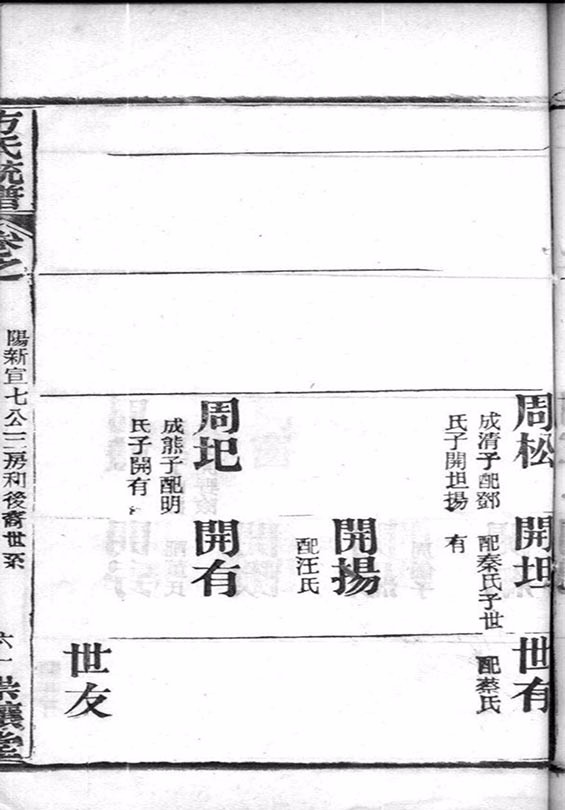 周松
成清子配鄧
氏子開坦揚
開坦
配秦氏子世
有
世有
配蔡氏
開揚
配汪氏
周圯
成熊子配明
氏子開有
開有
世友
方氏統譜
卷之
陽新宣七公三房和後裔世系
六一